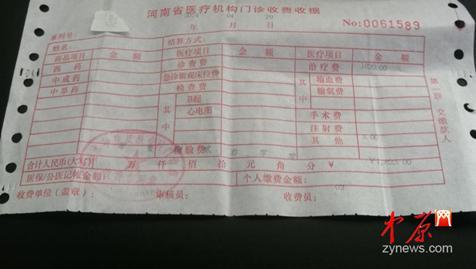 河南省医疗机构门诊收费收据
04 20
年 月 日
No:0061589
系列号:
姓名: 结算方式:
药品项目 金额 医疗项目 金额 医疗项目 金额
西药 诊查费 治疗费
中成药 急诊留观床位费 其中 输血费
中草药 检查费 输氧费
其中 B超 手术费
心电图 注射费
其他
化验费
合计人民币(大写) 万 仟 佰 拾 元 角 分 ¥
医保/公医记帐金额 个人缴费金额:
收费单位(盖章): 审核员: 收费员:
第一联 交缴款人
中原网
zynews.com